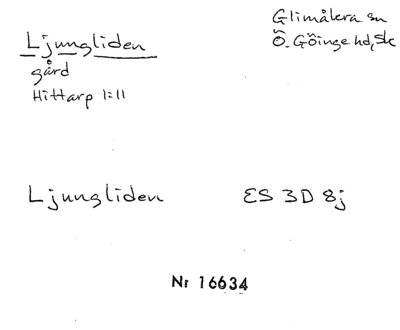 Ljungliden
gård
Hittarp 1:11
Glimåkra sn
Ö. Göinge hd, Sk
Ljungliden ES 3D 8j
Nr 16634